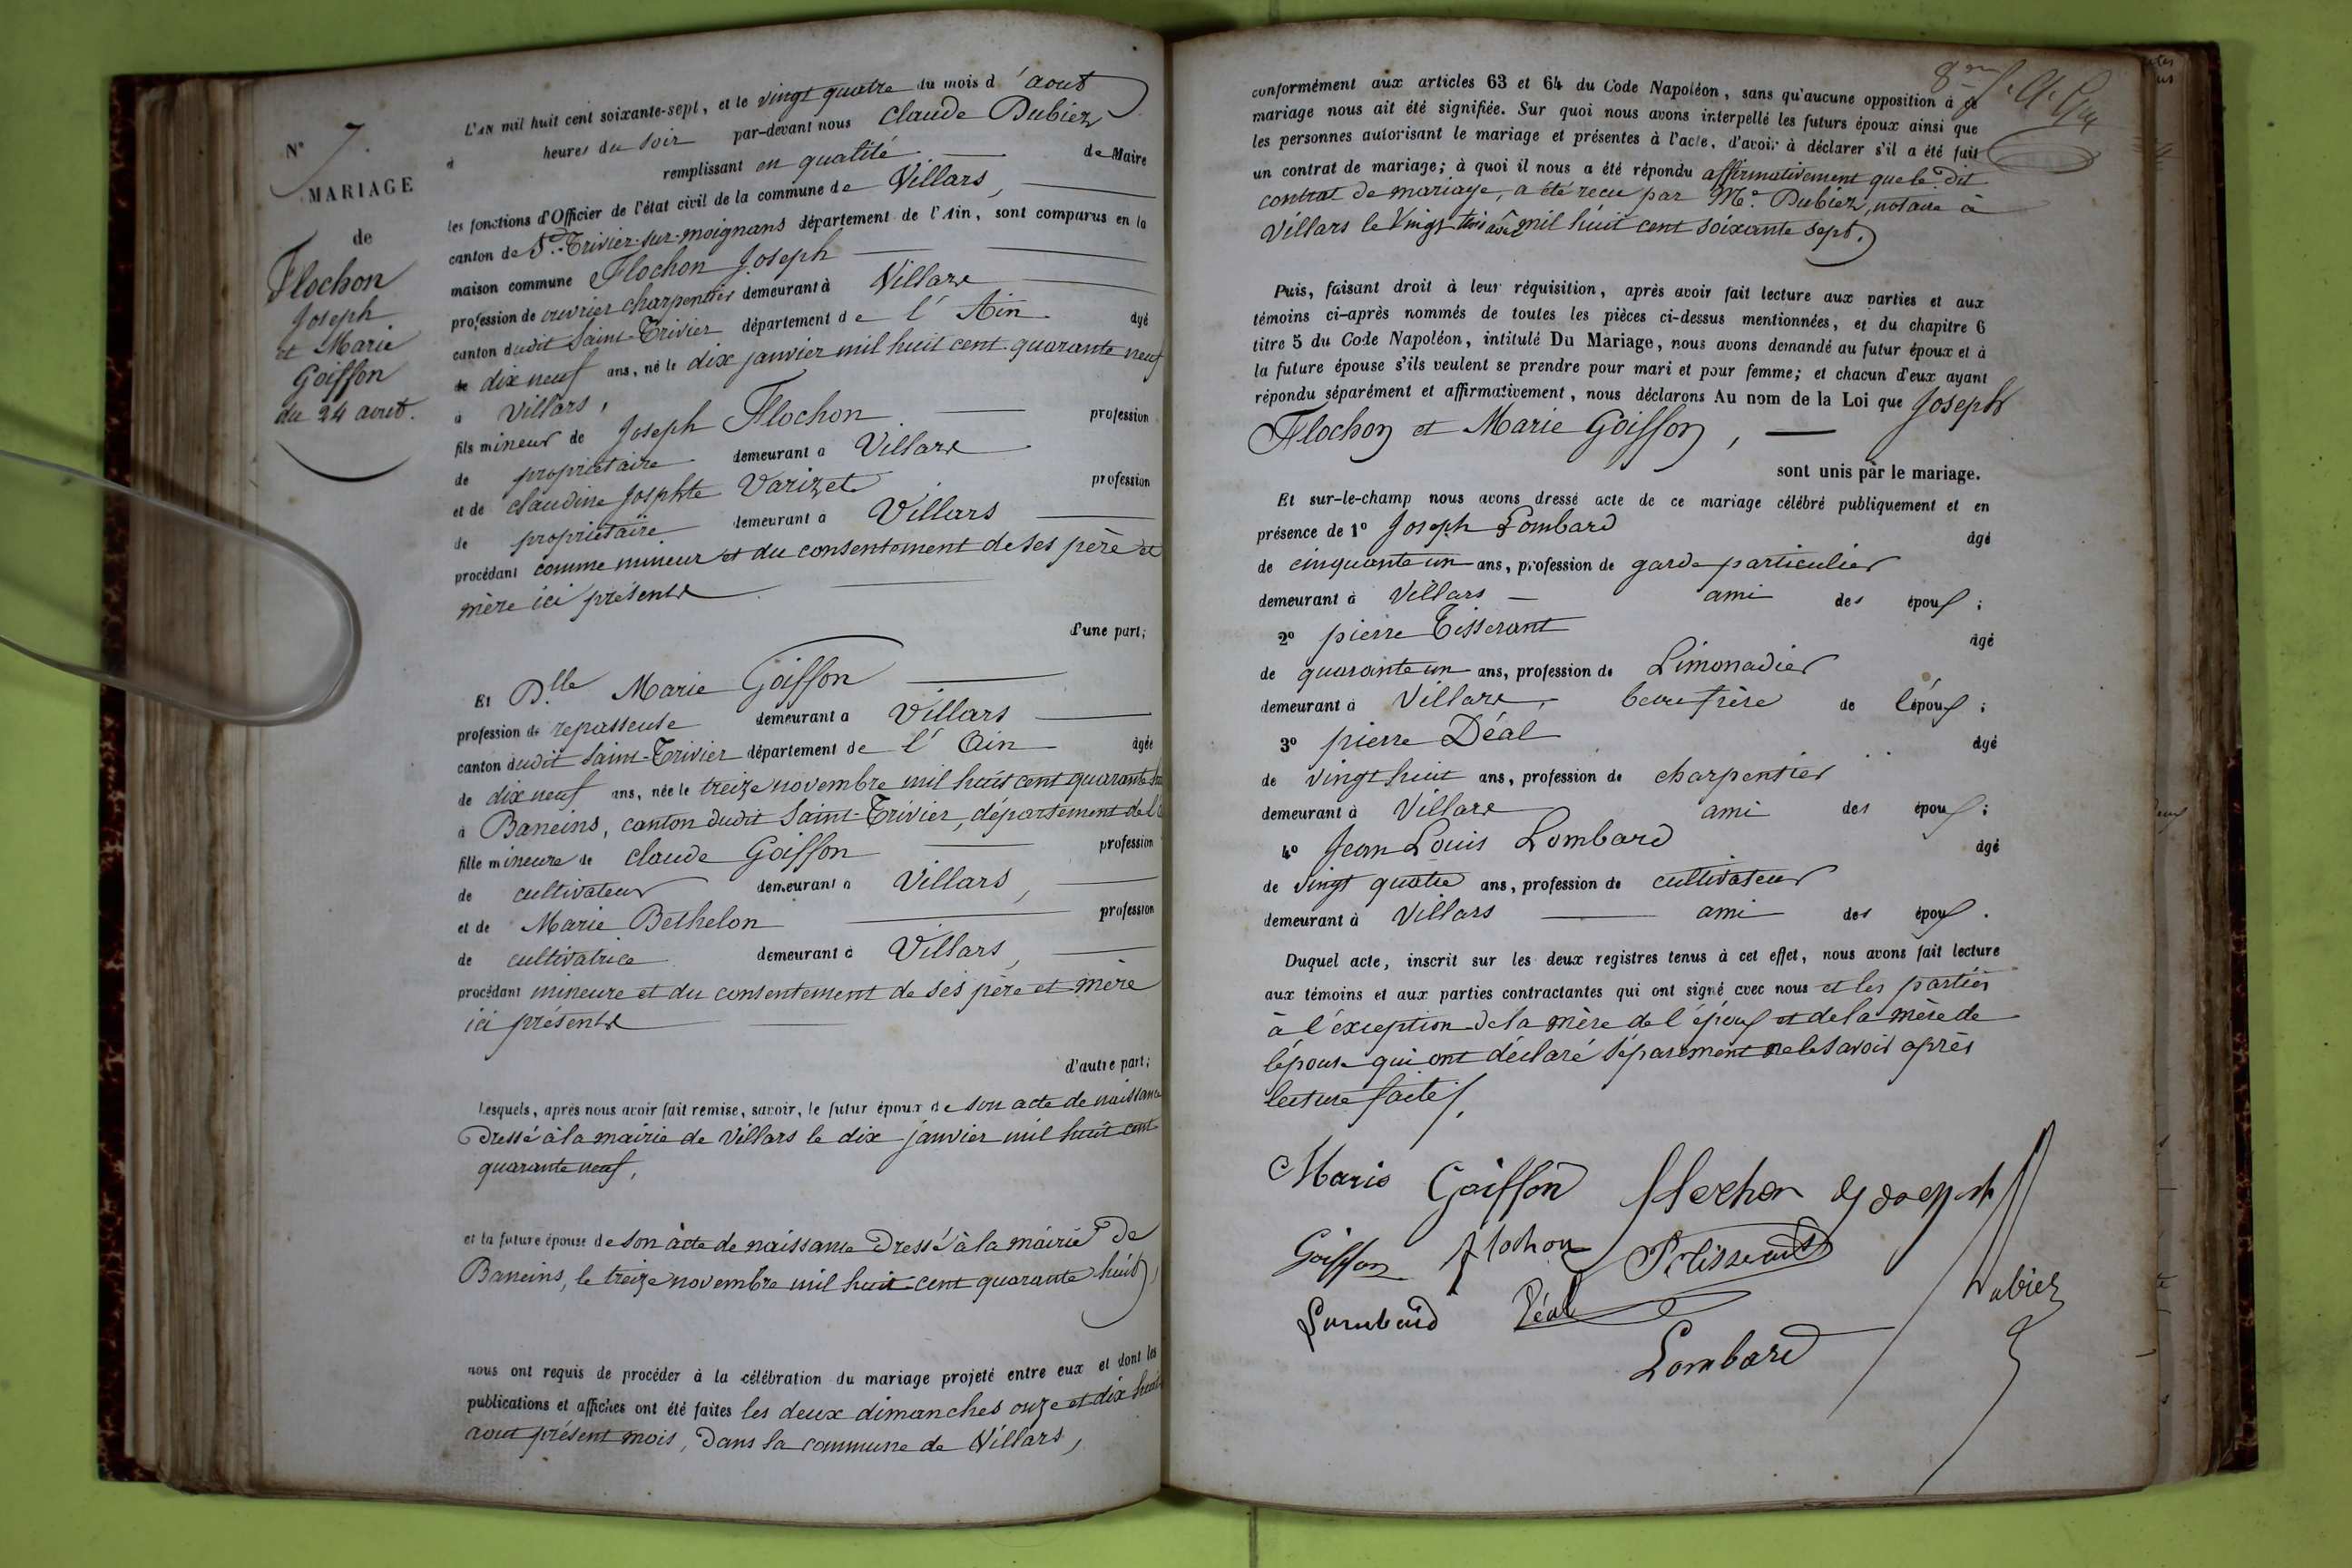 N° 7.
MARIAGE
de
Flochon
Joseph
et Marie
Goiffon
du 24 aout.
L'AN mil huit cent soixante-sept, et le vingt quatre du mois d'aout
à heures du soir par-devant nous Claude Dubiez
remplissant en qualité de Maire
les fonctions d'Officier de l'état civil de la commune de Villars,
canton de St. Trivier-sur-moignans département de l'Ain, sont comparus en la
maison commune Flochon Joseph
profession de ouvrier charpentier demeurant à Villars
canton dudit Saint-Trivier département de l'Ain âgé
de dix neuf ans, né le dix janvier mil huit cent quarante neuf
à Villars,
fils mineur de Joseph Flochon profession
de propriétaire demeurant à Villars
et de Claudine Josphte Varizet profession
de propriétaire demeurant à Villars
procédant comme mineur et du consentement de ses père et
mère ici présents
d'une part;
Et Dlle Marie Goiffon
profession de repasseuse demeurant à Villars
canton dudit Saint-Trivier département de l'Ain âgée
de dix neuf ans, née le treize novembre mil huit cent quarante
à Baneins, canton dudit Saint-Trivier, département de
fille mineure de Claude Goiffon profession
de cultivateur demeurant à Villars,
et de Marie Bethelon profession
de cultivatrice demeurant à Villars,
procédant mineure et du consentement de ses père et mère
ici présents
d'autre part;
Lesquels, après nous avoir fait remise, savoir, le futur époux de son acte de naissance
Dressé à la mairie de Villars le dix janvier mil huit cent
quarante neuf,
et la future épouse de son acte de naissance Dressé à la mairie De
Baneins, le treize novembre mil huit cent quarante huit,
nous ont requis de procéder à la célébration du mariage projeté entre eux et dont les
publications et affiches ont été faites les deux dimanches onze et dix huit
aout présent mois, Dans la commune de Villars,
conformément aux articles 63 et 64 du Code Napoléon, sans qu'aucune opposition à ce
mariage nous ait été signifiée. Sur quoi nous avons interpellé les futurs époux ainsi que
les personnes autorisant le mariage et présentes à l'acte, d'avoir à déclarer s'il a été fait
un contrat de mariage; à quoi il nous a été répondu affirmativement que le dit
contrat de mariage, a été recu par Me. Dubiez, notaire à
Villars le Vingt trois août mil huit cent soixante sept.
Puis, faisant droit à leur réquisition, après avoir fait lecture aux parties et aux
témoins ci-après nommés de toutes les pièces ci-dessus mentionnées, et du chapitre 6
titre 5 du Code Napoléon, intitulé Du Mariage, nous avons demandé au futur époux et à
la future épouse s'ils veulent se prendre pour mari et pour femme; et chacun d'eux ayant
répondu séparément et affirmativement, nous déclarons Au nom de la Loi que Joseph
Flochon et Marie Goiffon,
sont unis par le mariage.
Et sur-le-champ nous avons dressé acte de ce mariage célébré publiquement et en
présence de 1° Joseph Lombard âgé
de cinquante un ans, profession de garde particulier
demeurant à Villars ami des époux;
2° pierre Tisserant âgé
de quarante un ans, profession de Limonadier
demeurant à Villars, beaufrère de l'époux;
3° pierre Déal âgé
de vingt huit ans, profession de charpentier
demeurant à Villars ami des époux;
4° Jean Louis Lombard âgé
de vingt quatre ans, profession de cultivateur
demeurant à Villars ami des époux.
Duquel acte, inscrit sur les deux registres tenus à cet effet, nous avons fait lecture
aux témoins et aux parties contractantes qui ont signé avec nous et les parties
à l'exception de la mère de l'époux et de la mère de
l'épouse qui ont déclaré séparément ne le savoir après
lecture faite.
Marie Goiffon Flochon Joseph
Goiffon Flochon P Tisserant
Lombard Déal Dubiez
Lombard